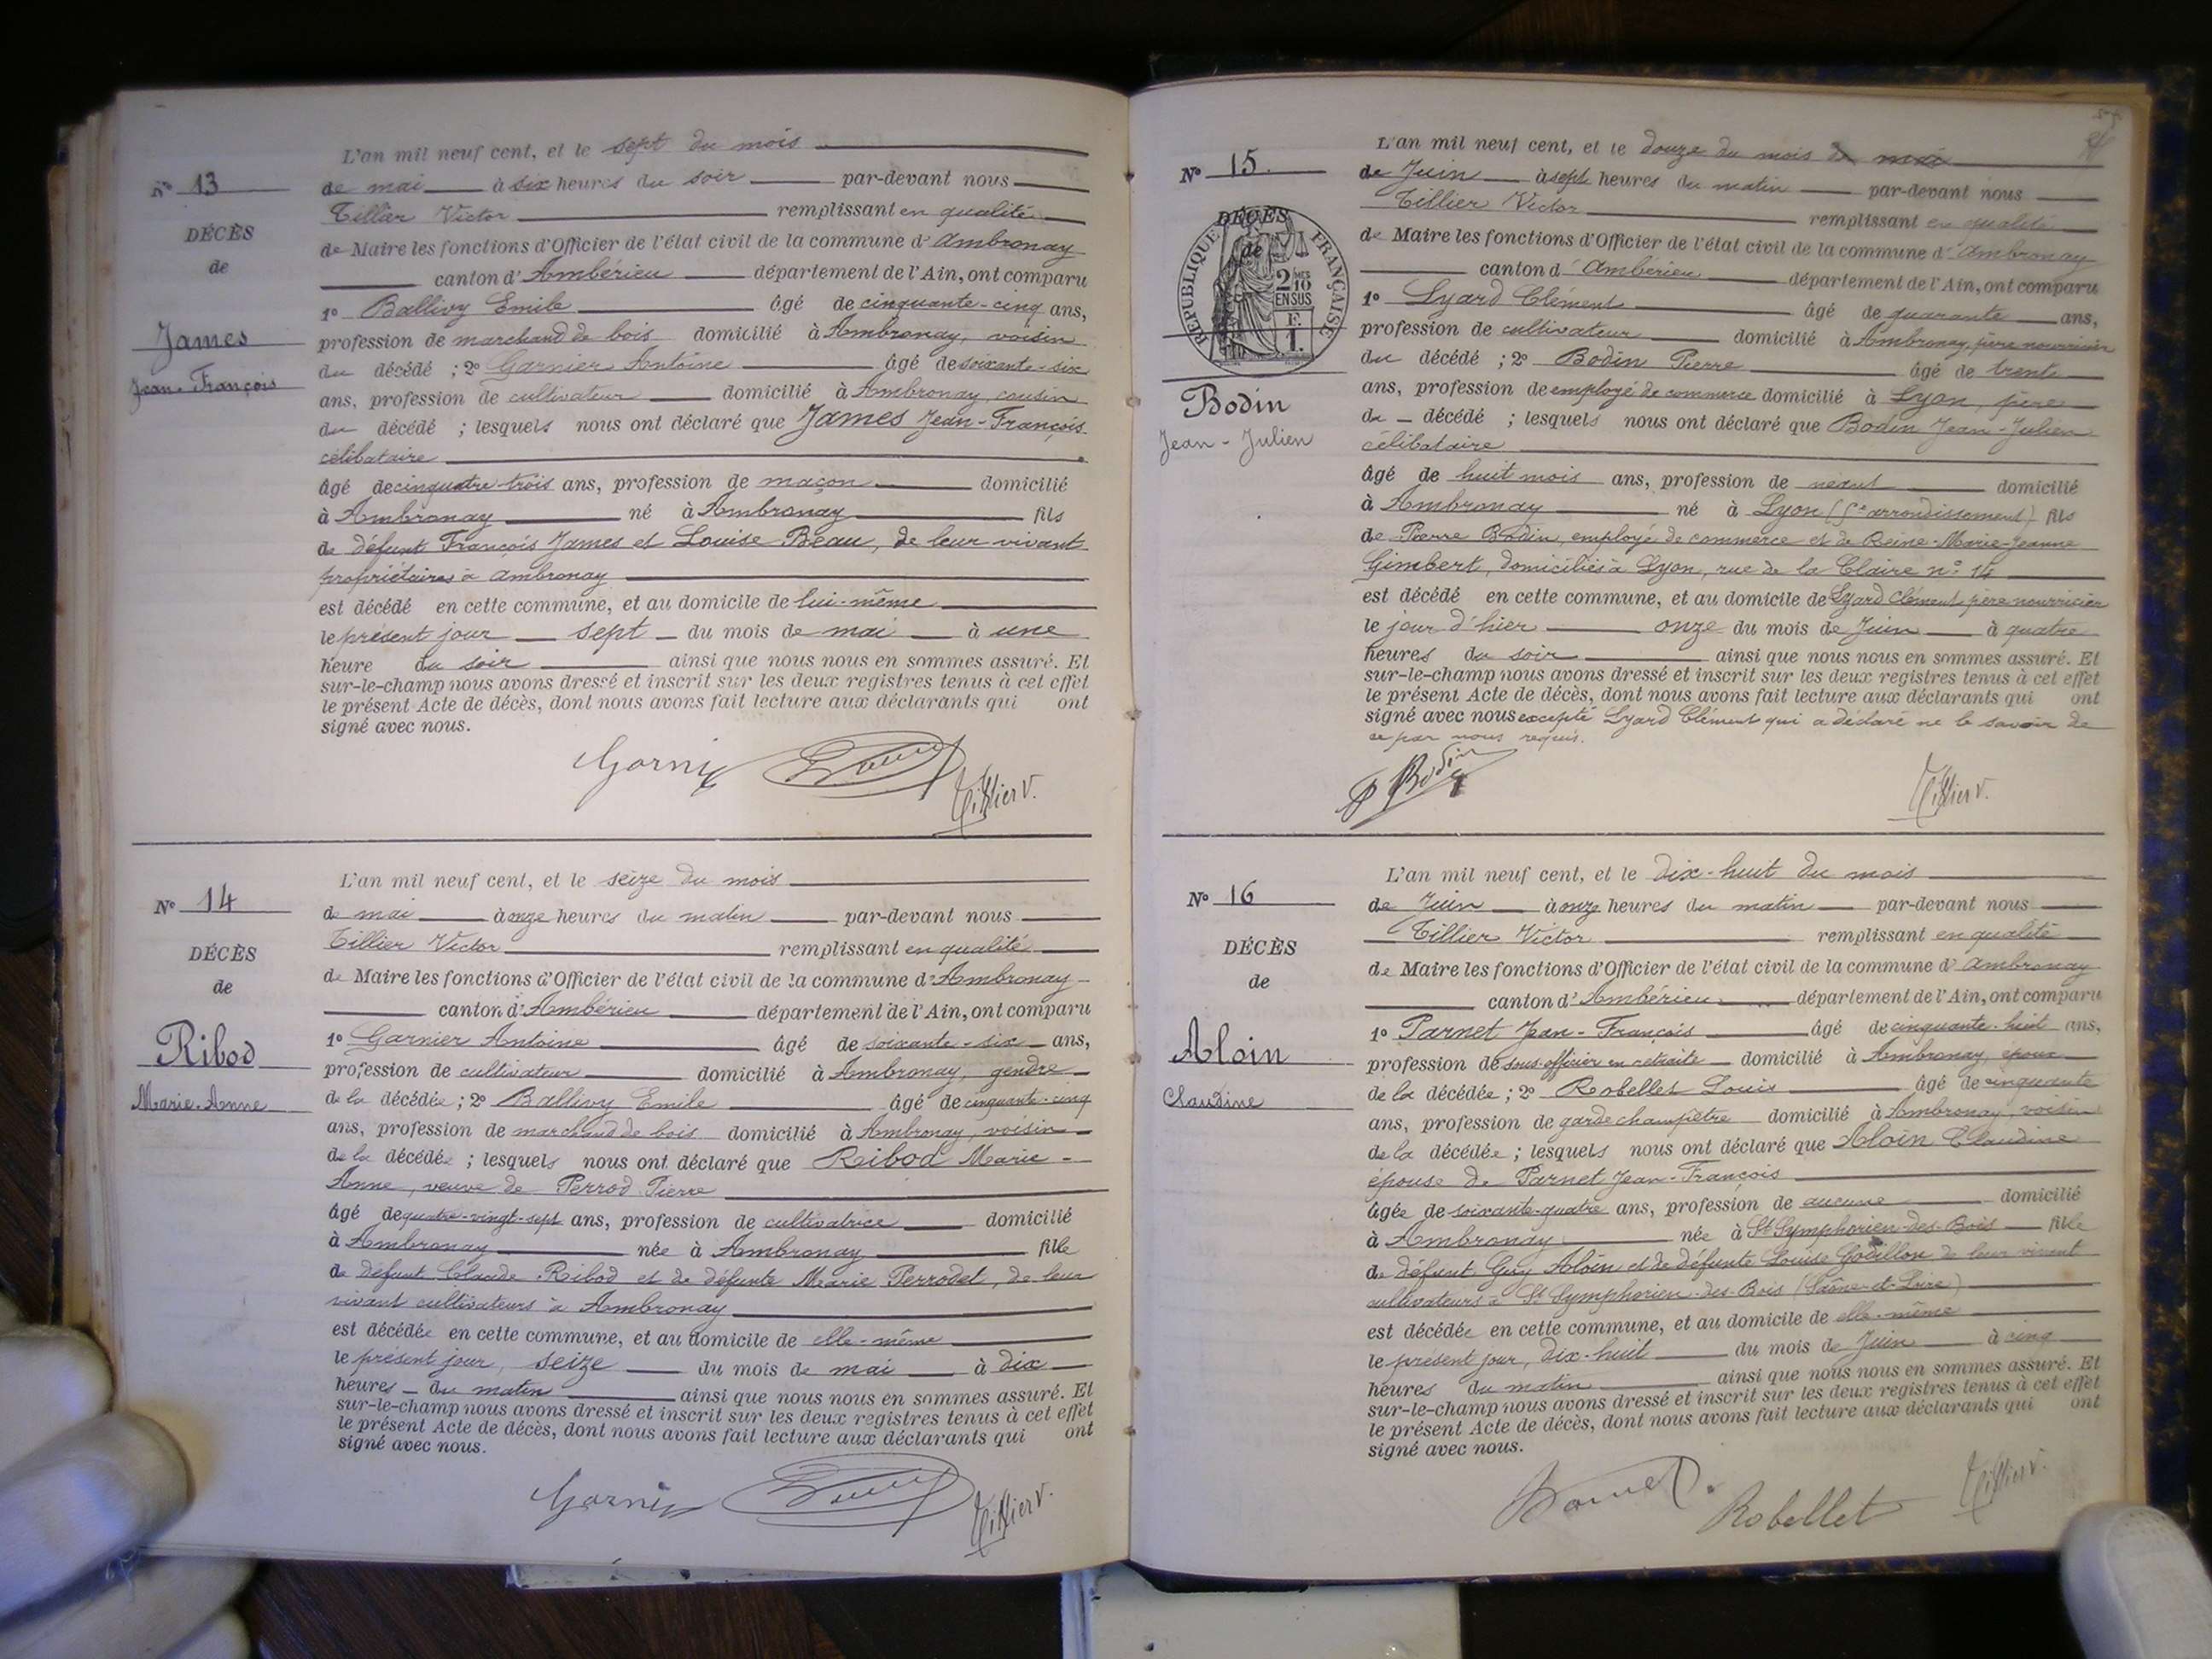 L'an mil neuf cent, et le sept du mois
N° 13
de mai à six heures du soir par-devant nous
Tillier Victor remplissant en qualité
DÉCÈS
de Maire les fonctions d'Officier de l'état civil de la commune d'Ambronay
de
canton d'Ambérieu département de l'Ain, ont comparu
1° Ballivy Emile âgé de cinquante-cinq ans,
James
profession de marchand de bois domicilié à Ambronay, voisin
du décédé ; 2° Garnier Antoine âgé de soixante-six
Jean-François
ans, profession de cultivateur domicilié à Ambronay, cousin
du décédé ; lesquels nous ont déclaré que James Jean-François
célibataire
âgé de cinquante trois ans, profession de maçon domicilié
à Ambronay né à Ambronay fils
de défunt François James et Louise Beau, de leur vivant
propriétaires à Ambronay
est décédé en cette commune, et au domicile de lui-même
le présent jour sept du mois de mai à une
heure du soir ainsi que nous nous en sommes assuré. Et
sur-le-champ nous avons dressé et inscrit sur les deux registres tenus à cet effet
le présent Acte de décès, dont nous avons fait lecture aux déclarants qui ont
signé avec nous.
Garnier Tillier V.
L'an mil neuf cent, et le seize du mois
N° 14
de mai à onze heures du matin par-devant nous
Tillier Victor remplissant en qualité
DÉCÈS
de Maire les fonctions d'Officier de l'état civil de la commune d'Ambronay
de
canton d'Ambérieu département de l'Ain, ont comparu
1° Garnier Antoine âgé de soixante-six ans,
Ribod
profession de cultivateur domicilié à Ambronay, gendre
de la décédée ; 2° Ballivy Emile âgé de cinquante-cinq
Marie-Anne
ans, profession de marchand de bois domicilié à Ambronay, voisin
de la décédée ; lesquels nous ont déclaré que Ribod Marie-
Anne, veuve de Perrod Pierre
âgé de quatre-vingt-sept ans, profession de cultivatrice domicilié
à Ambronay née à Ambronay fille
de défunt Claude Ribod et de défunte Marie Perrodet, de leur
vivant cultivateurs à Ambronay
est décédée en cette commune, et au domicile de elle-même
le présent jour, seize du mois de mai à dix
heures du matin ainsi que nous nous en sommes assuré. Et
sur-le-champ nous avons dressé et inscrit sur les deux registres tenus à cet effet
le présent Acte de décès, dont nous avons fait lecture aux déclarants qui ont
signé avec nous.
Garnier Tillier V.
L'an mil neuf cent, et le douze du mois de mai
N° 15.
de Juin à sept heures du matin par-devant nous
Tillier Victor remplissant en qualité
DÉCÈS
de
RÉPUBLIQUE FRANÇAISE
2 MES 10
EN SUS
F.
1.
de Maire les fonctions d'Officier de l'état civil de la commune d'Ambronay
canton d'Ambérieu département de l'Ain, ont comparu
1° Lyard Clément âgé de quarante ans,
profession de cultivateur domicilié à Ambronay, père nourricier
du décédé ; 2° Bodin Pierre âgé de trente
Bodin
ans, profession de employé de commerce domicilié à Lyon, père
Jean-Julien
du décédé ; lesquels nous ont déclaré que Bodin Jean-Julien
célibataire
âgé de huit mois ans, profession de néant domicilié
à Ambronay né à Lyon (5e arrondissement) fils
de Pierre Bodin, employé de commerce et de Reine-Marie-Jeanne
Gimbert, domiciliés à Lyon, rue de la Claire n° 14
est décédé en cette commune, et au domicile de Lyard Clément père nourricier
le jour d'hier onze du mois de Juin à quatre
heures du soir ainsi que nous nous en sommes assuré. Et
sur-le-champ nous avons dressé et inscrit sur les deux registres tenus à cet effet
le présent Acte de décès, dont nous avons fait lecture aux déclarants qui ont
signé avec nous excepté Lyard Clément qui a déclaré ne le savoir de
ce par nous requis.
P Bodin Tillier V.
L'an mil neuf cent, et le dix-huit du mois
N° 16
de Juin à onze heures du matin par-devant nous
Tillier Victor remplissant en qualité
DÉCÈS
de Maire les fonctions d'Officier de l'état civil de la commune d'Ambronay
de
canton d'Ambérieu département de l'Ain, ont comparu
1° Parnet Jean-François âgé de cinquante-huit ans,
Aloin
profession de sous officier en retraite domicilié à Ambronay, époux
de la décédée ; 2° Robellet Louis âgé de cinquante
Claudine
ans, profession de garde champêtre domicilié à Ambronay, voisin
de la décédée ; lesquels nous ont déclaré que Aloin Claudine
épouse de Parnet Jean-François
âgée de soixante-quatre ans, profession de aucune domicilié
à Ambronay née à St Symphorien-des-Bois fille
de défunt Guy Aloin et de défunte Louise Godillon de leur vivant
cultivateurs à St Symphorien-des-Bois (Saône-et-Loire)
est décédée en cette commune, et au domicile de elle-même
le présent jour, dix-huit du mois de Juin à cinq
heures du matin ainsi que nous nous en sommes assuré. Et
sur-le-champ nous avons dressé et inscrit sur les deux registres tenus à cet effet
le présent Acte de décès, dont nous avons fait lecture aux déclarants qui ont
signé avec nous.
Parnet Robellet Tillier V.